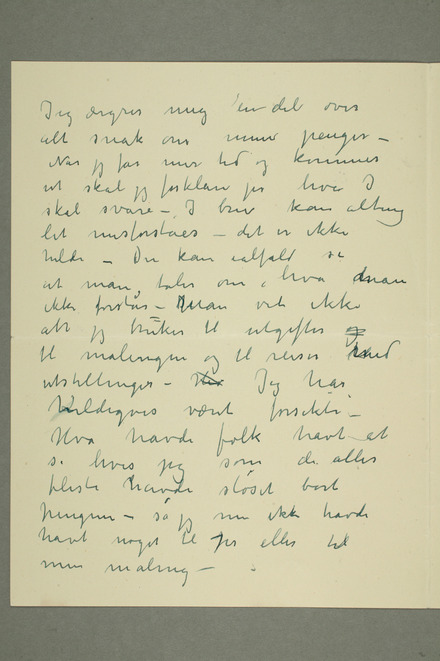 Jeg ærgrer mig en del over
alt snak om mine penger –
Når jeg får mer tid og kommer
ut skal jeg forklare jer hva I
skal svare – I brev kan alting
let misforstaes – det er ikke
heldi – Du kan ialfald si
at man taler om hva man
ikke forstår – Man vet ikke
alt jeg bruker til utgifter og
til malingen og til reiser med
utstillinger – Jeg har
heldigvis været forsikti –
Hva havde folk havt at
si hvis jeg som de aller
fleste havde sløset bort
pengene – så jeg nu ikke havde
havt noget til jer eller til
min maling –